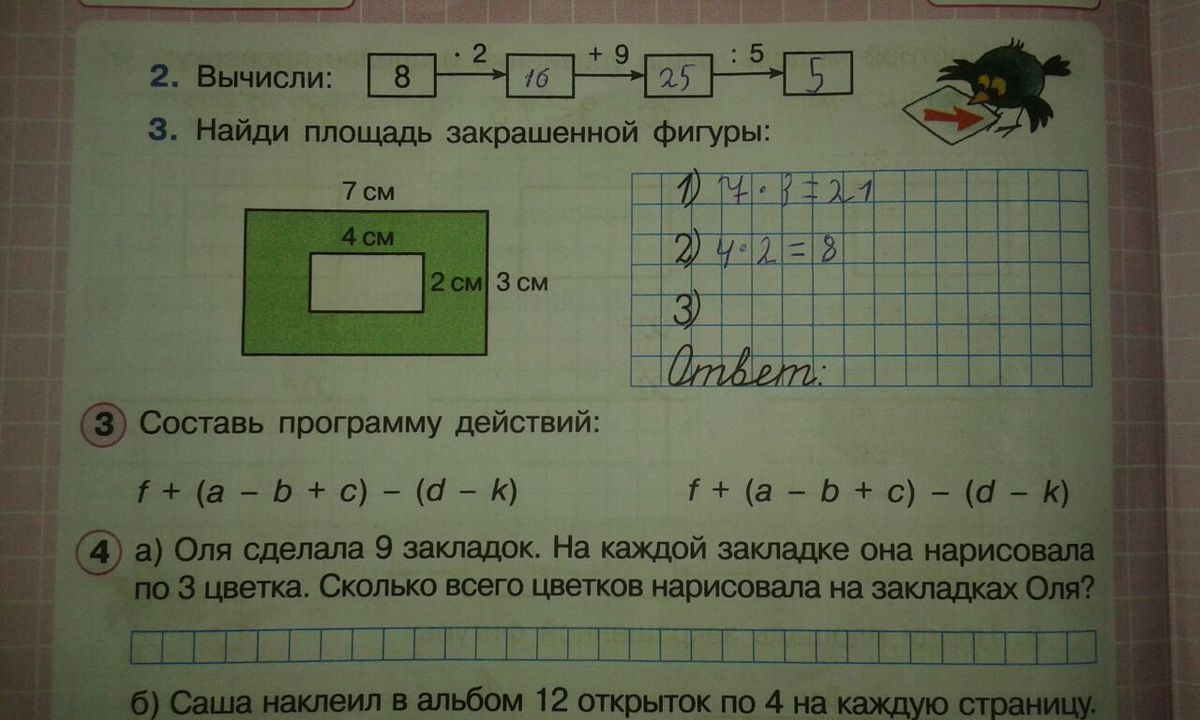 · 2 + 9 : 5
2. Вычисли: 8 16 25 5
3. Найди площадь закрашенной фигуры:
7 см
4 см
2 см 3 см
1) 7 · 3 = 21
2) 4 · 2 = 8
3)
Ответ:
3 Составь программу действий:
f + (a – b + c) – (d – k) f + (a – b + c) – (d – k)
4 а) Оля сделала 9 закладок. На каждой закладке она нарисовала
по 3 цветка. Сколько всего цветков нарисовала на закладках Оля?
б) Саша наклеил в альбом 12 открыток по 4 на каждую страницу.